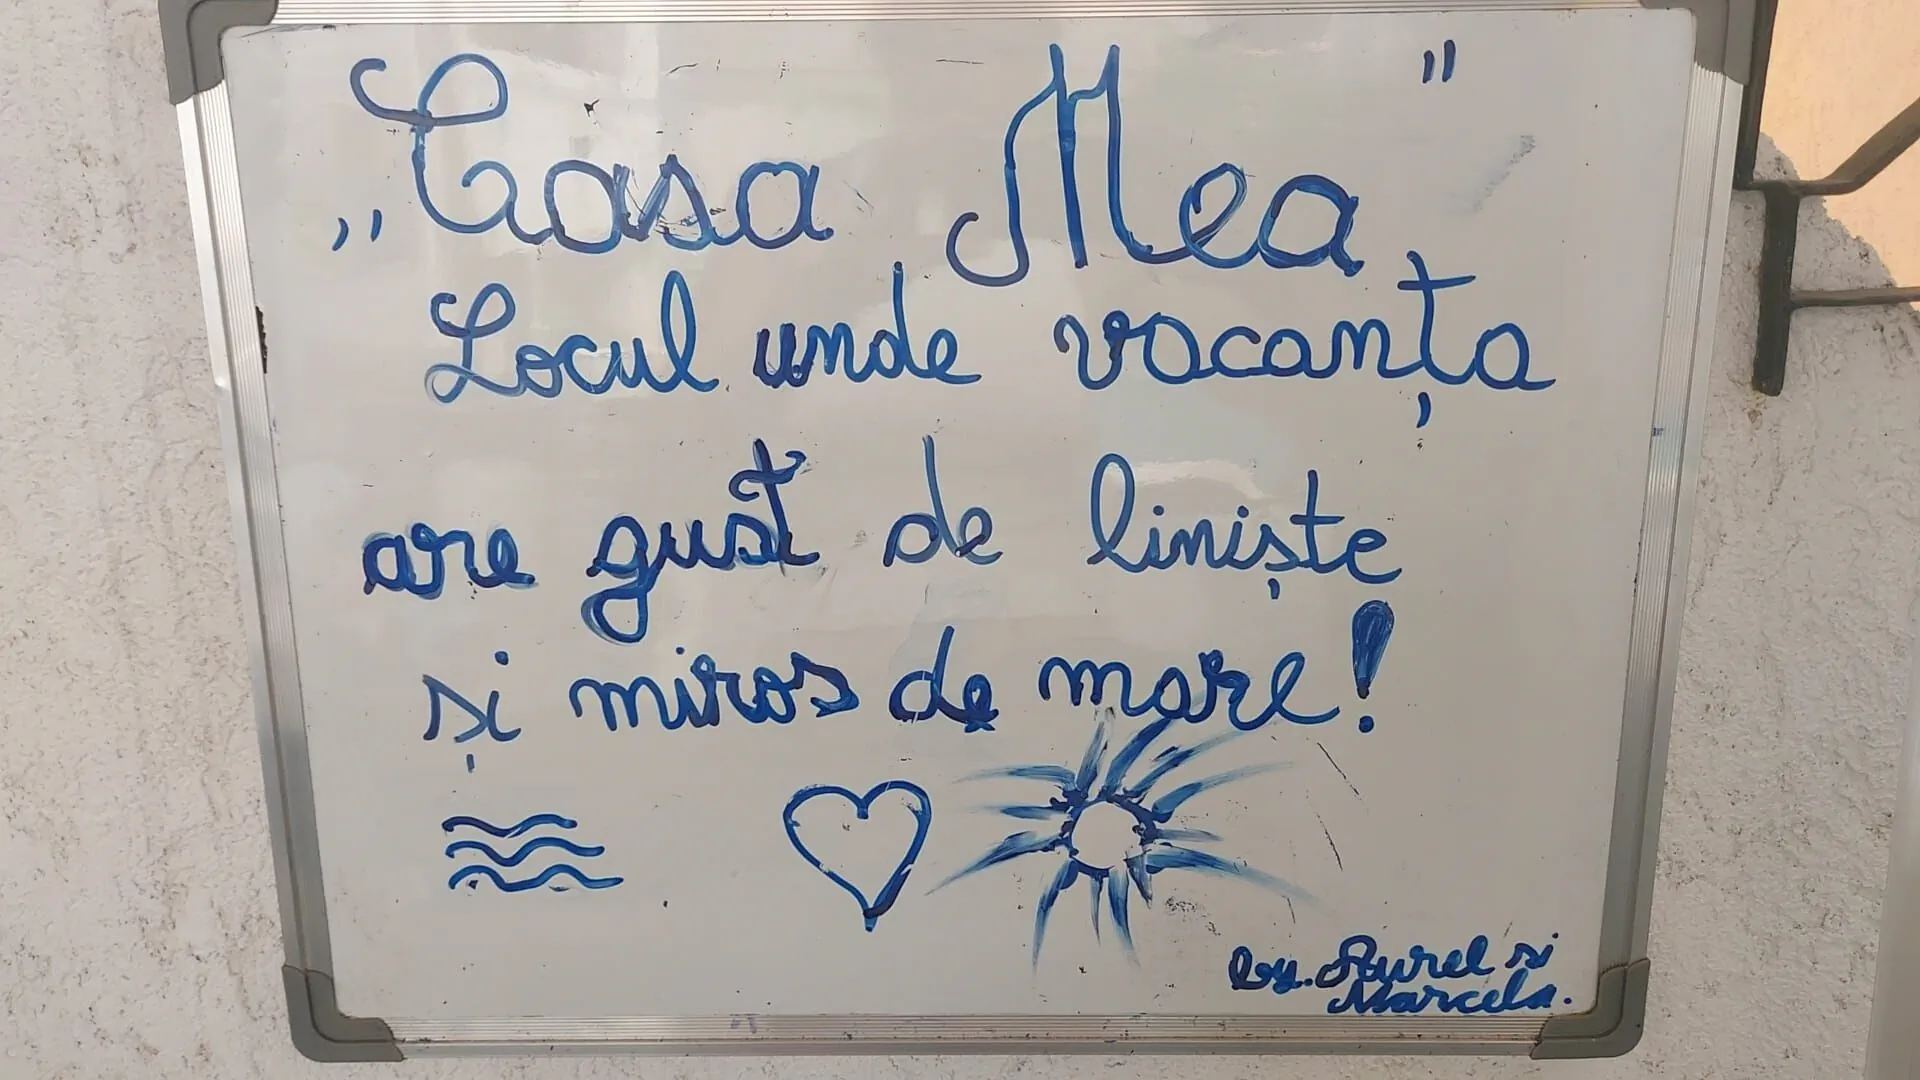 „Casa Mea"
Locul unde vacanța
are gust de liniște
și miros de mare!
by. Aurel si
Marcela.